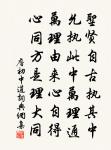 聖賢自古執其中
允執此中萬理通
萬理由來心自得
心同方是理大同
唐初中道詞典網集